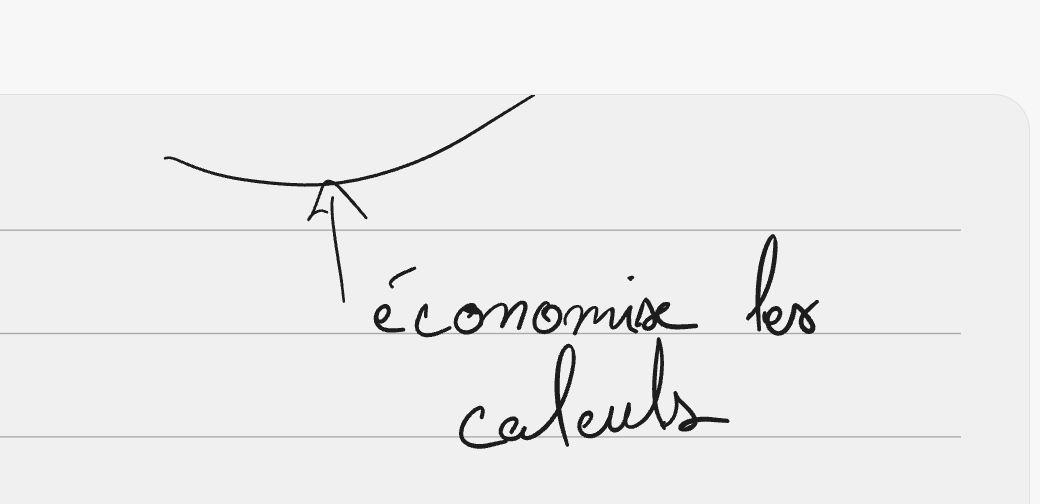 économise les
calculs